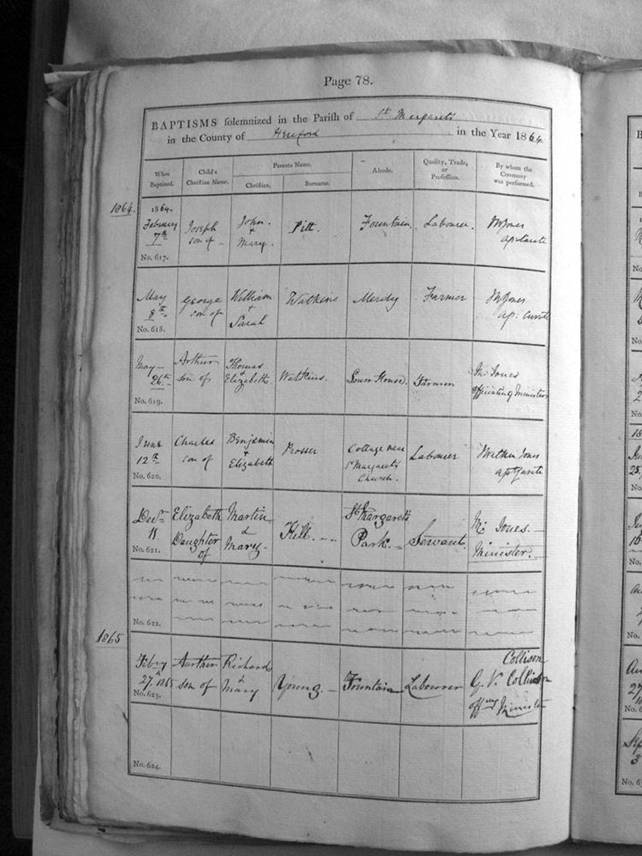 Page 78.
BAPTISMS solemnized in the Parish of St. Margarets
in the County of Hereford in the Year 1864
When Baptized. Child's Christian Name. Parents Name. Abode. Quality, Trade, or Profession. By whom the Ceremony was performed.
Christian. Surname.
1864.
1864.
February Joseph John Pitt. Fountain Labourer. W Jones
7th son of + Mary
No. 617.
May George William Watkins Merdy Farmer W Jones
8th son of + Sarah
No. 618.
May Arthur Thomas Watkins. Lower House. Farmer Jones
26th son of Elizabeth officiating Minister
No. 619.
June Charles Benjamin Prosser Cottage near Labourer Watkin Jones
12th son of + Elizabeth St Margarets
Church.
No. 620.
Decr Elizabeth Martin Hill. St Margarets Servant W. Jones.
11 Daughter & Mary Park. Minister.
of
No. 621.
No. 622.
1865
Feby Arthur Richard Young Fountain Labourer Collison
27. 1865 son of + Mary G. V. Collison
offng Minister
No. 623.
No. 624.